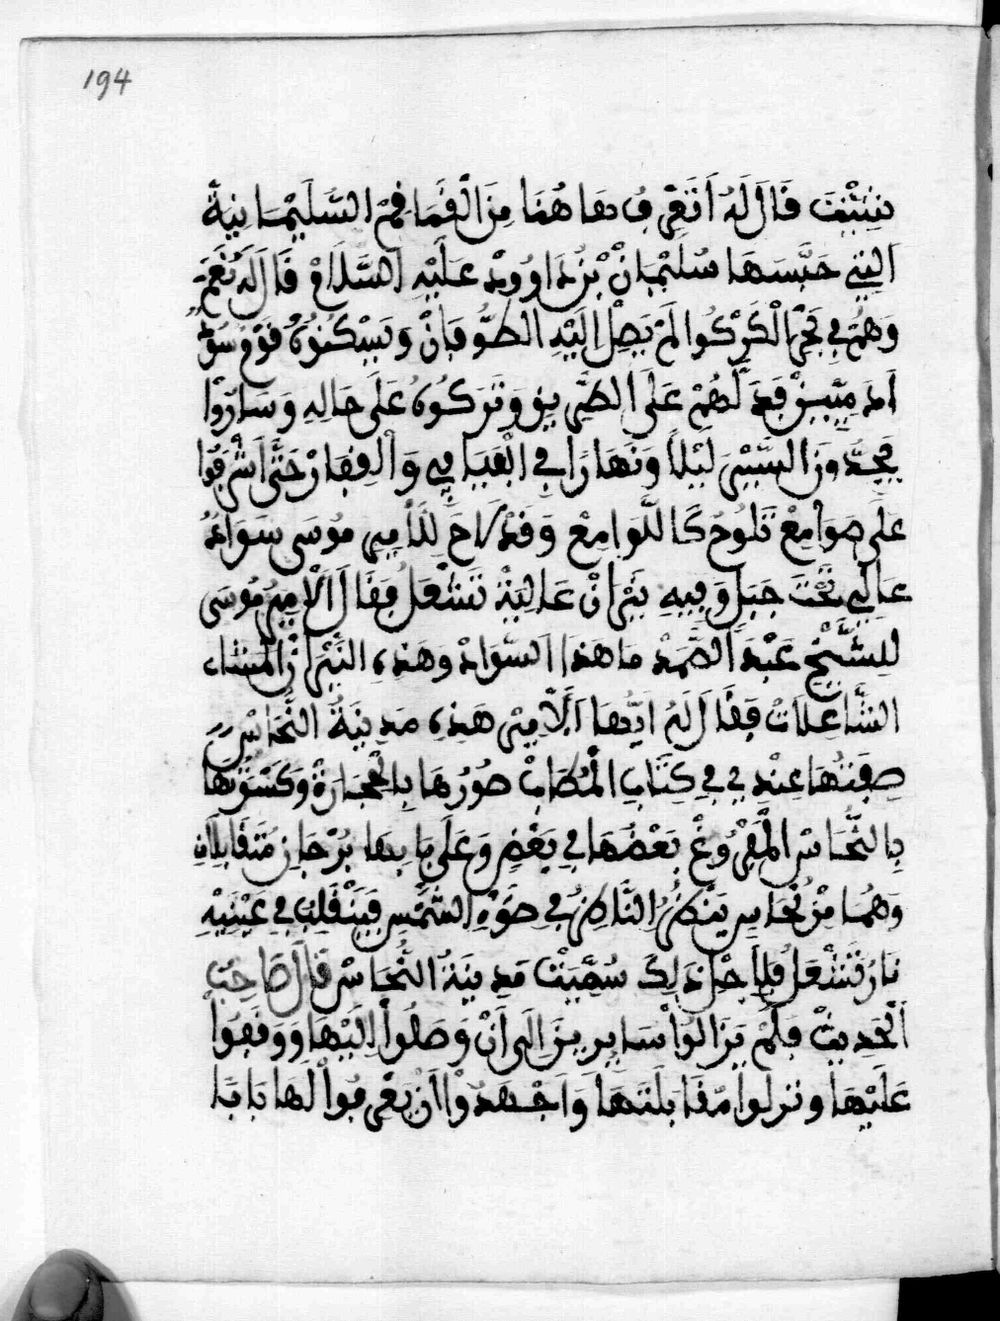 194
شئت قال له اتعرف هاهنا من القماقم السليمانية
التي حبسها سليمان بن داوود عليه السلام قال له نعم
وهم في بحر الكركر لم يصل اليه الطوفان ويسكنوه قوم سود
ادميين فدلهم على الطريق وتركوه على حاله وساروا
يجدون السير ليلا ونهارا في الفيافي والقفار حتى اشرفوا
على صوامع تلوح كاللوامع وقد لاح للامير موسى سواد
عالي تحت جبل وفيه نيران عالية تشعل فقال الامير موسى
للشيخ عبد الصمد ما هذا السواد وهذه النيران
الشاعلات فقال له ايها الامير هذه مدينة النحاس
صفتها عندي في كتاب صورها بالحجارة وكسوتها
بالنحاس المفروغ بعضها في بعض وعلى بابها برجان متقابلان
وهما من نحاس ينظر الناظر في ضوء الشمس فينقلب في عينيه
نار تشعل فلاجل ذلك سميت مدينة النحاس قال صاحب
الحديث فلم يزالوا سايرين الى ان وصلوا اليها ووقفوا
عليها ونزلوا مقابلتها واجهدوا ان يعرفوا لها بابا